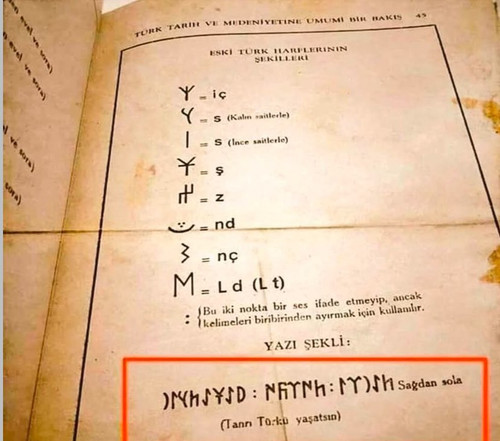 evel ve sora)
ve sora)
ve sora)
sora)
TÜRK TARİH VE MEDENİYETİNE UMUMİ BİR BAKIŞ 45
ESKİ TÜRK HARFLERININ
ŞEKILLERI
= iç
= s (Kalın saitlerle)
𐰾 = s (İnce saitlerle)
= ş
= z
= nd
𐰨 = nç
= Ld (Lt)
: {Bu iki nokta bir ses ifade etmeyip, ancak
kelimeleri biribirinden ayırmak için kullanılır.
YAZI ŞEKLİ:
Sağdan sola
(Tanrı Türkü yaşatsın)